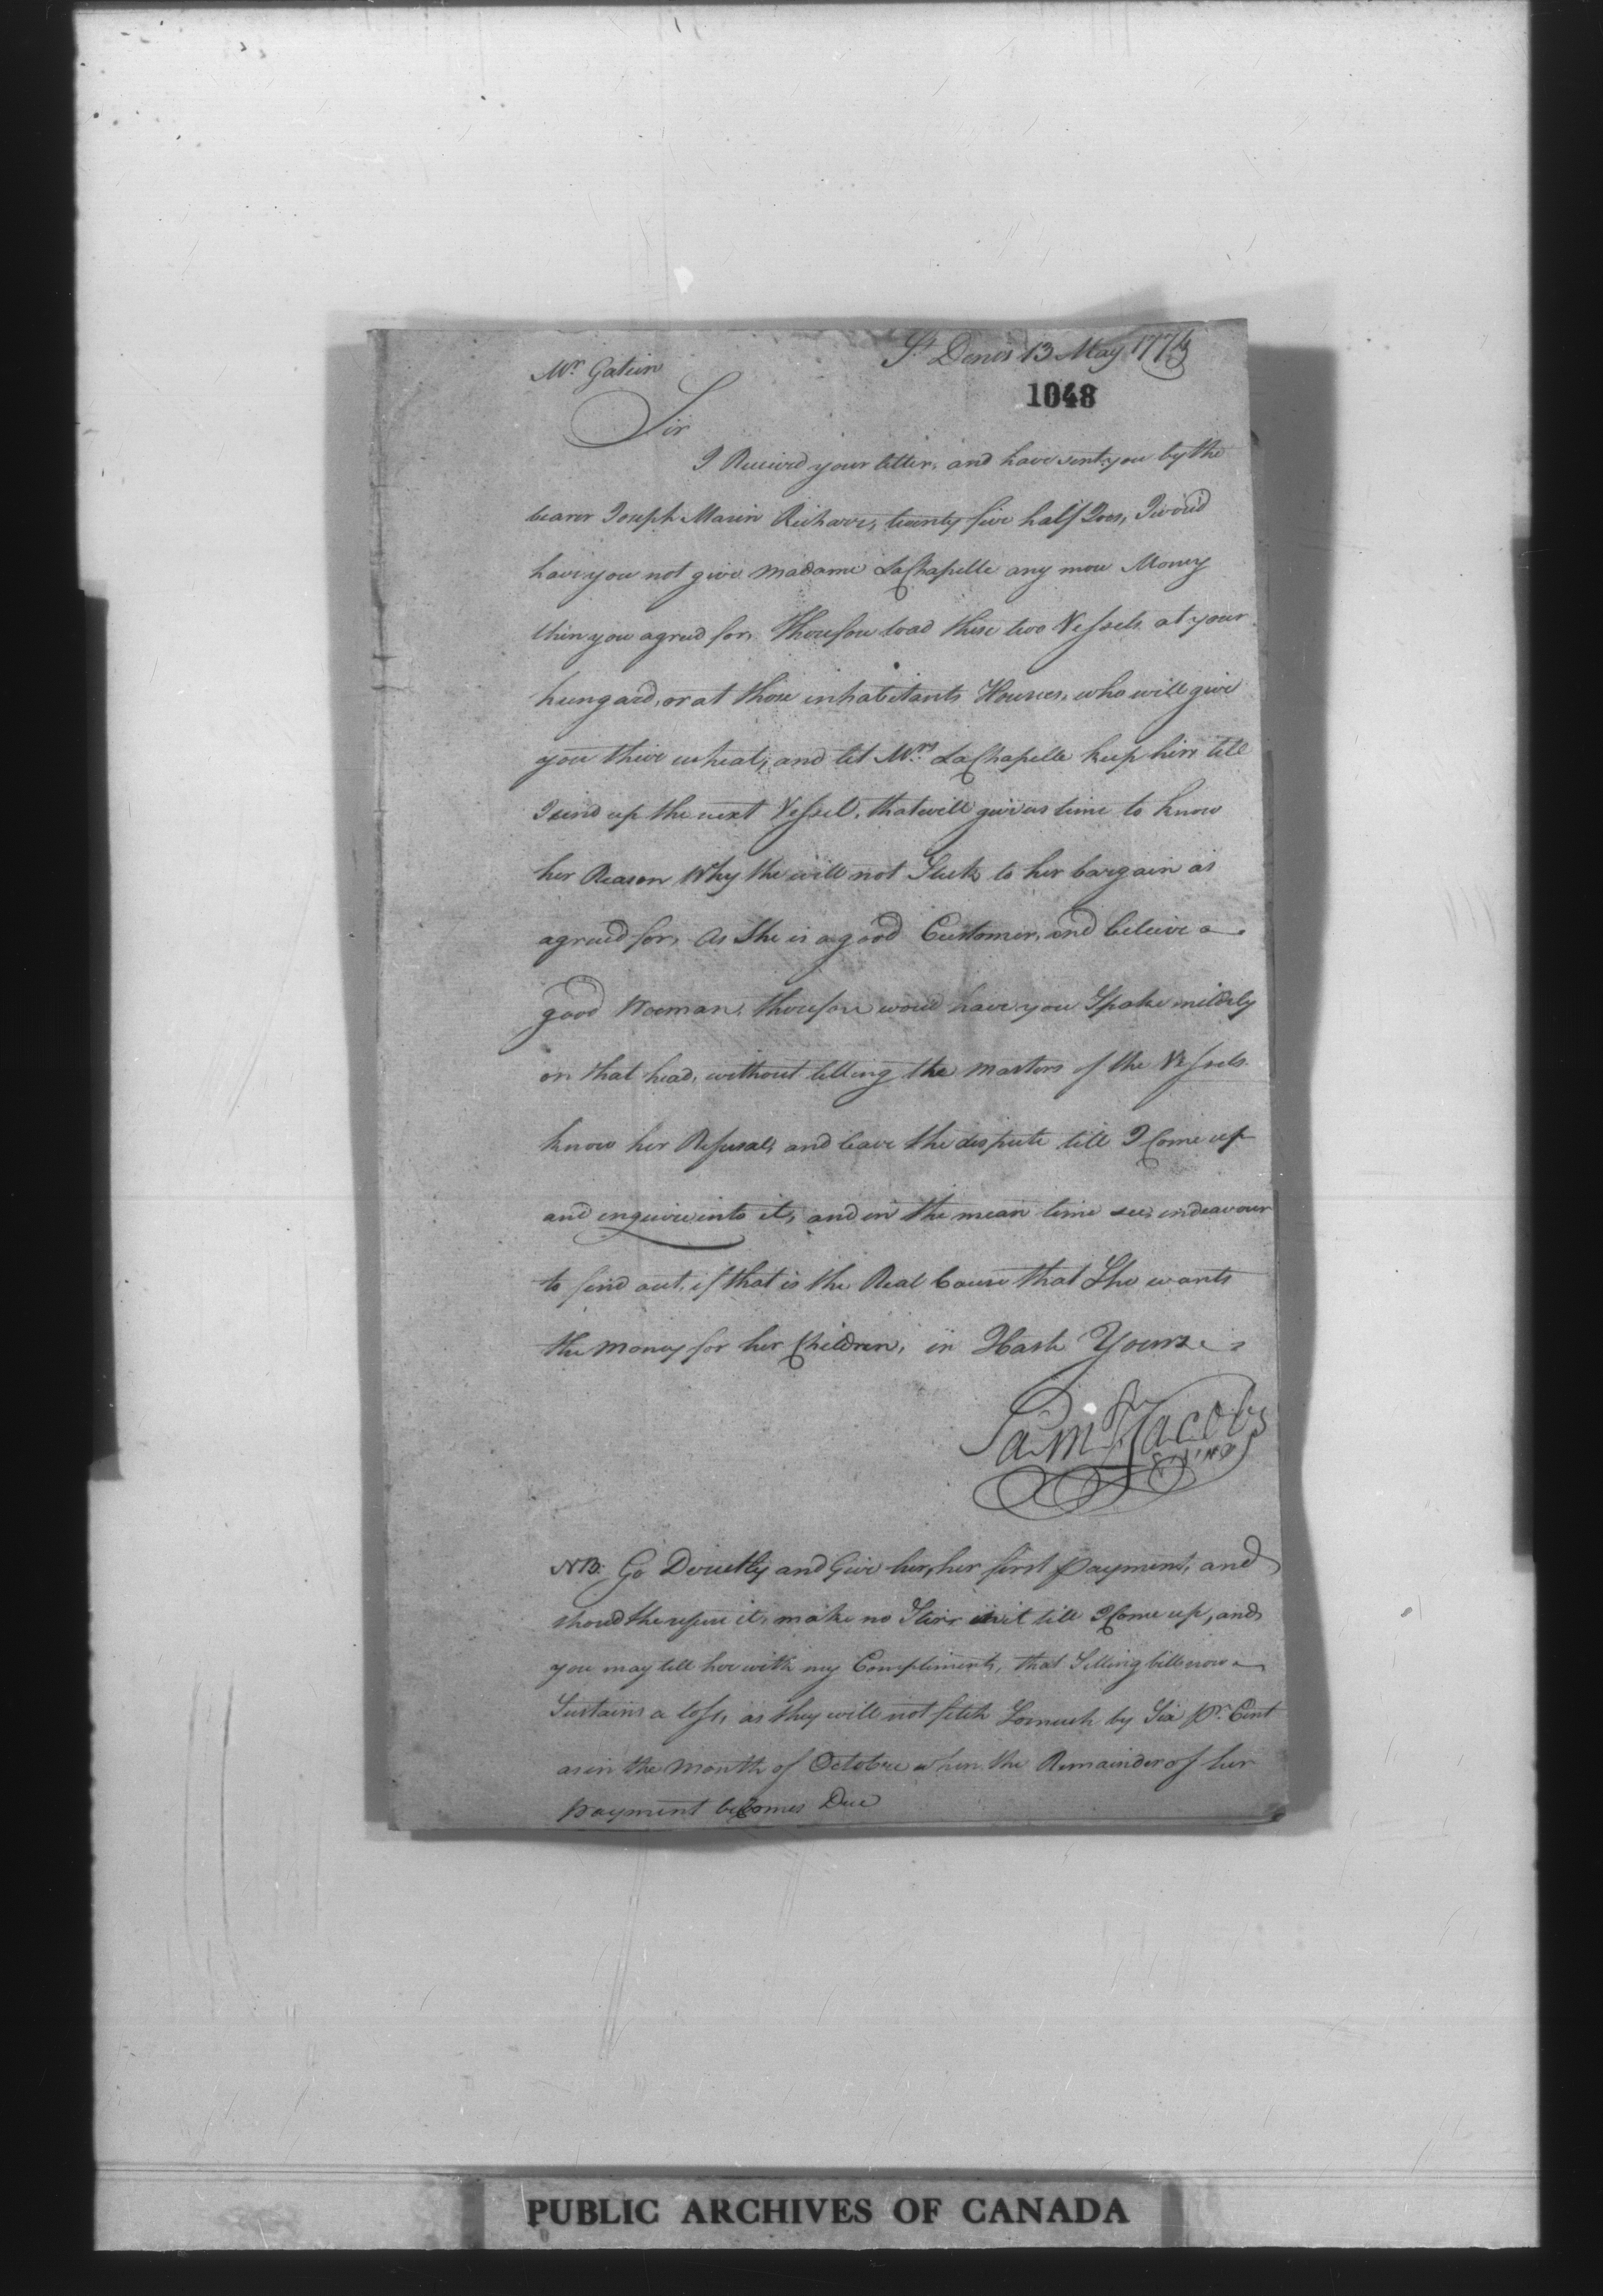 St Denis 13 May 1774
Mr. Gatien
1048
Sir
I Received your letter, and have sent you by the
bearer Joseph Marin Richard, twenty five half Joes, I wou'd
have you not give Madame LaChapelle any more Money
then you agreed for, Therefore load these two Vessels at your
hungard, or at those inhabitants Houses, who will give
you their wheat, and let Mrs. LaChapelle keep hers till
I send up the next Vessel, that will give us time to know
her Reason Why she will not Stick to her bargain as
agreed for, As She is a good Customer, and believe a
good Wooman, therefore wou'd have you Spake mildely
on that head, without letting the Masters of the Vessels
know her Refusal, and leave the dispute till I Come up
and enquire into it, and in the mean time endeavour
to find out, if that is the Real Cause that She wants
the Money for her Children, in Hast Yours
Saml Jacobs
NB. Go Directly and Give her, her first payment, and
shoud she refuse it, make no Stirr in it till I Come up, and
you may tell her with my Compliments, that Selling bills now
Sustains a loss, as they will not fetch Somuch by Six pr. Cent
as in the Month of Octobre when the Remainder of her
payment becomes Due
PUBLIC ARCHIVES OF CANADA